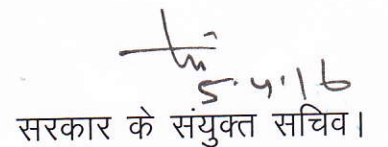 5.4.16
सरकार के संयुक्त सचिव।